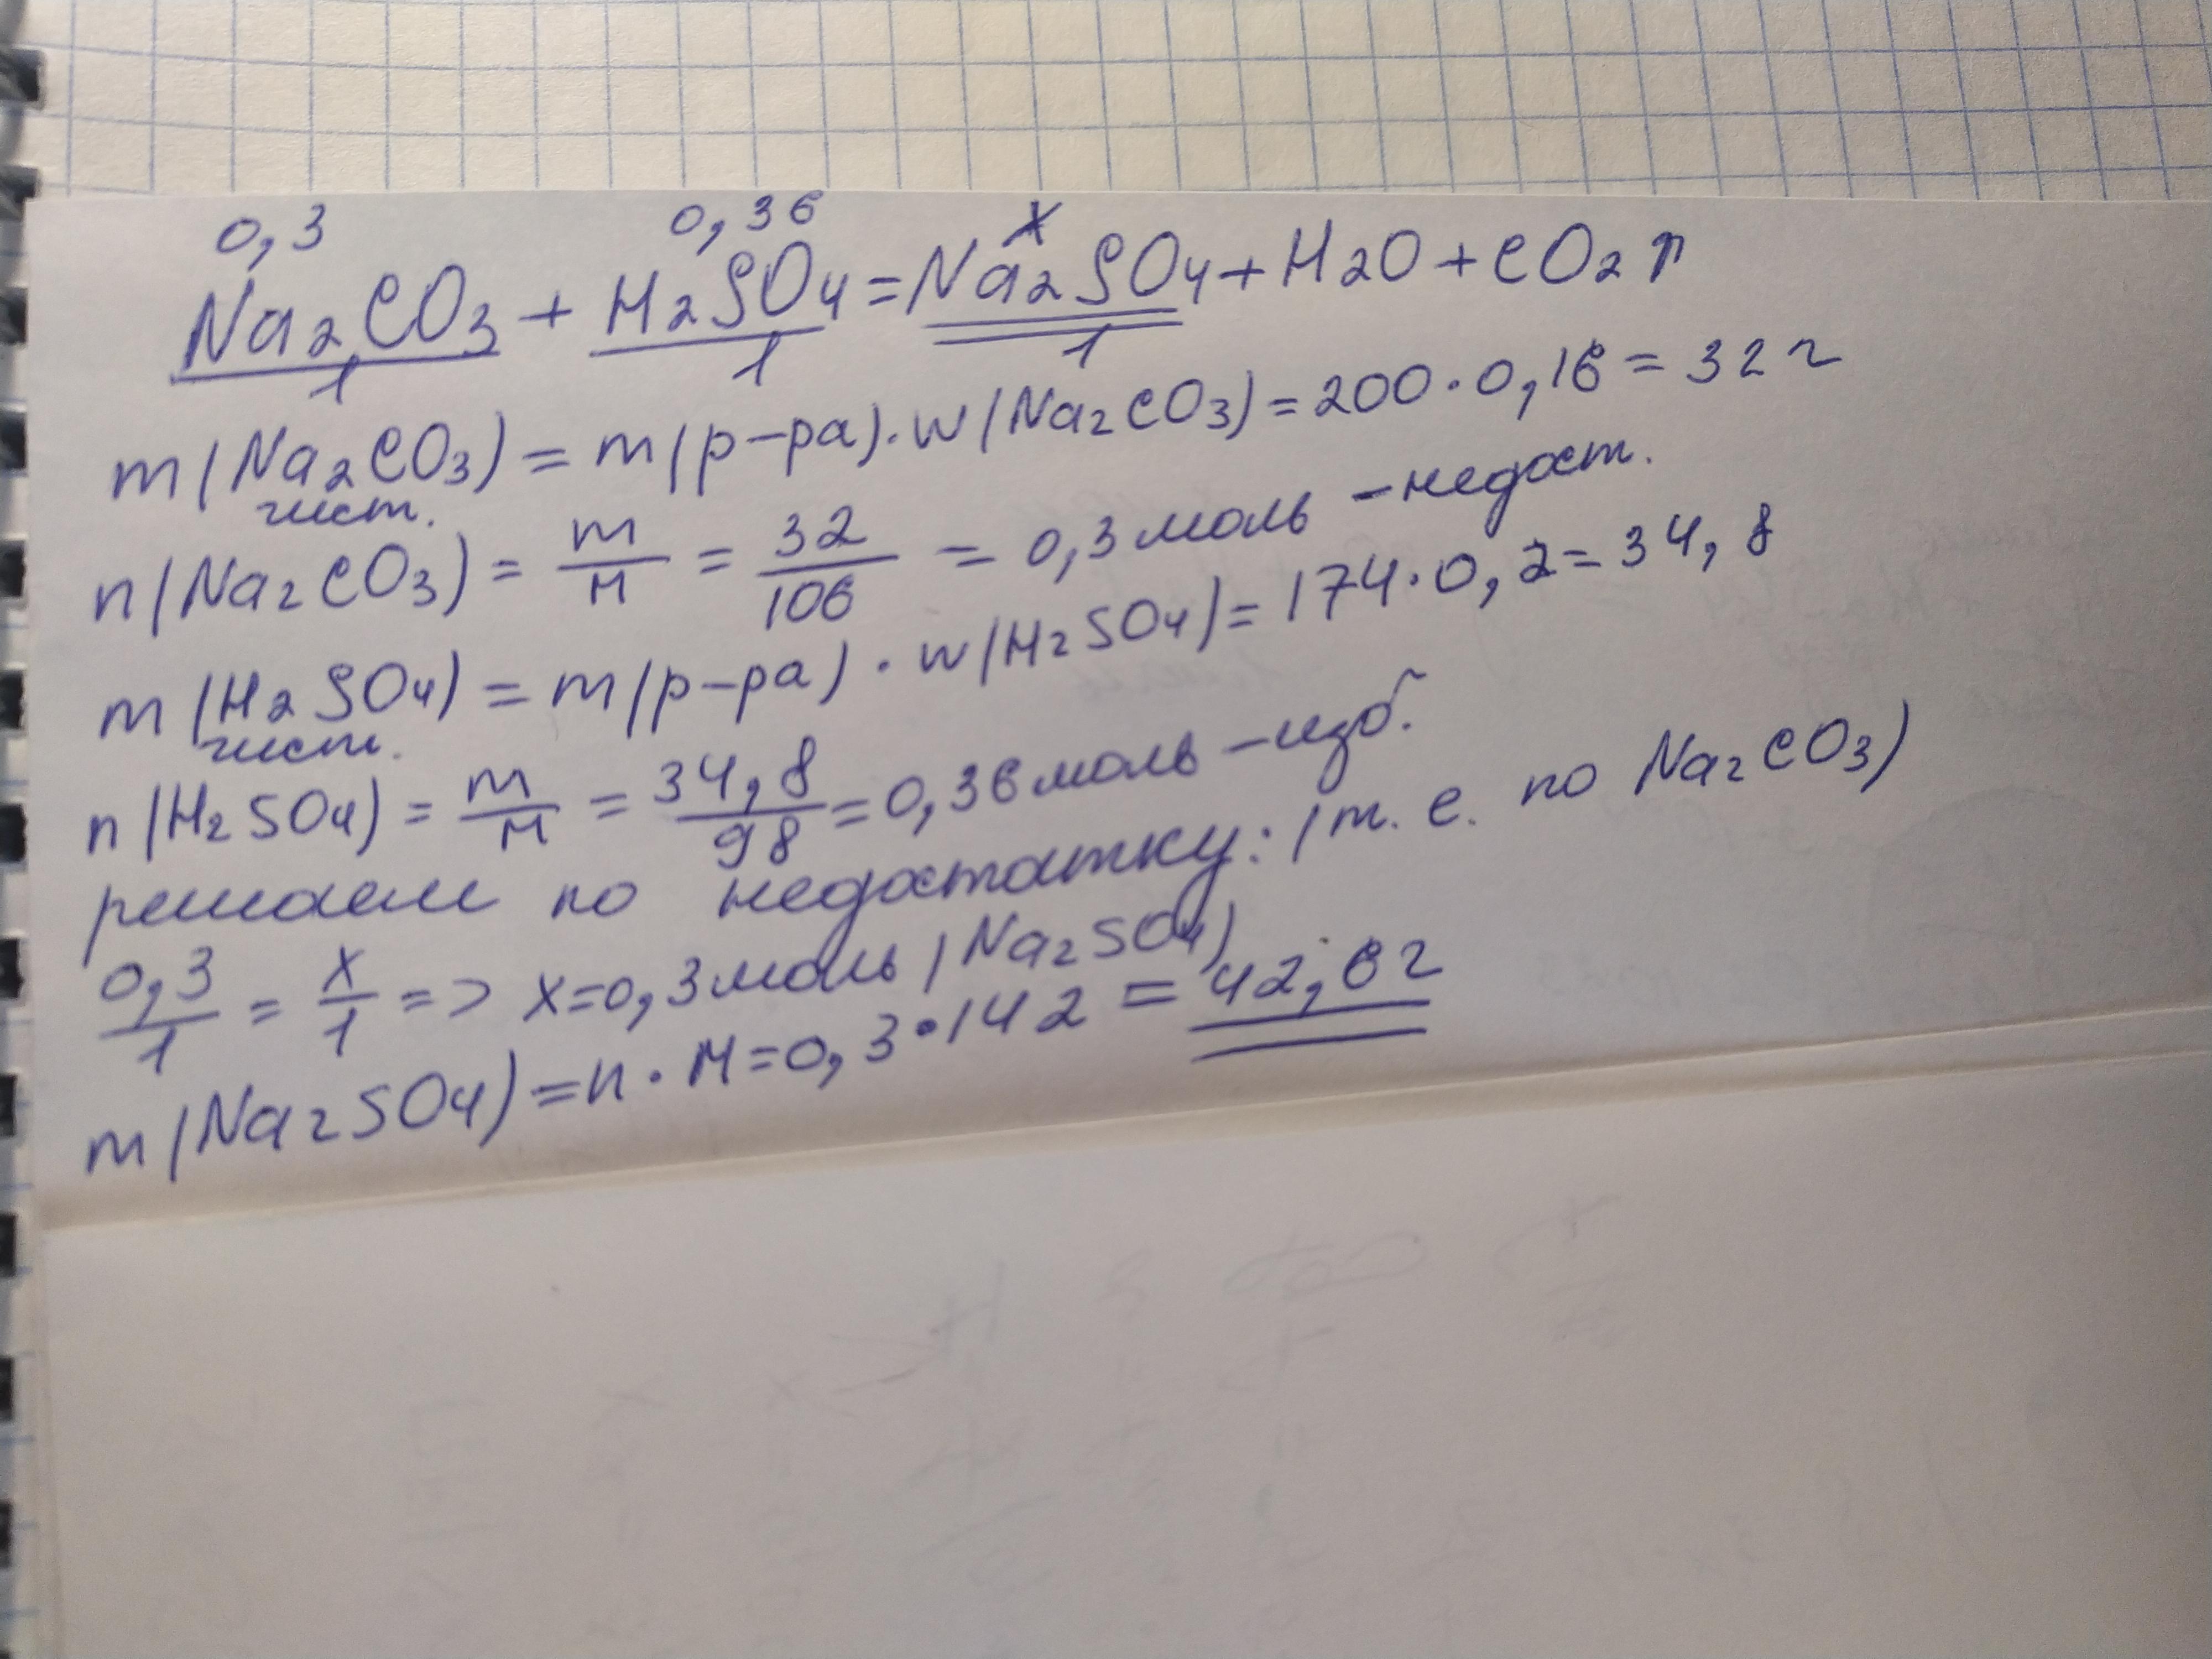 0,3 0,36 x
Na2CO3 + H2SO4 = Na2SO4 + H2O + CO2 ↑
1 1 1
m(Na2CO3) = m(р-ра)·w(Na2CO3) = 200·0,16 = 32 г
чист.
n(Na2CO3) = m/M = 32/106 = 0,3 моль – недост.
m(H2SO4) = m(р-ра)·w(H2SO4) = 174·0,2 = 34,8
чист.
n(H2SO4) = m/M = 34,8/98 = 0,36 моль – изб.
решаем по недостатку: (т. е. по Na2CO3)
0,3/1 = x/1 => x=0,3 моль (Na2SO4)
m(Na2SO4) = n·M = 0,3·142 = 42,6 г